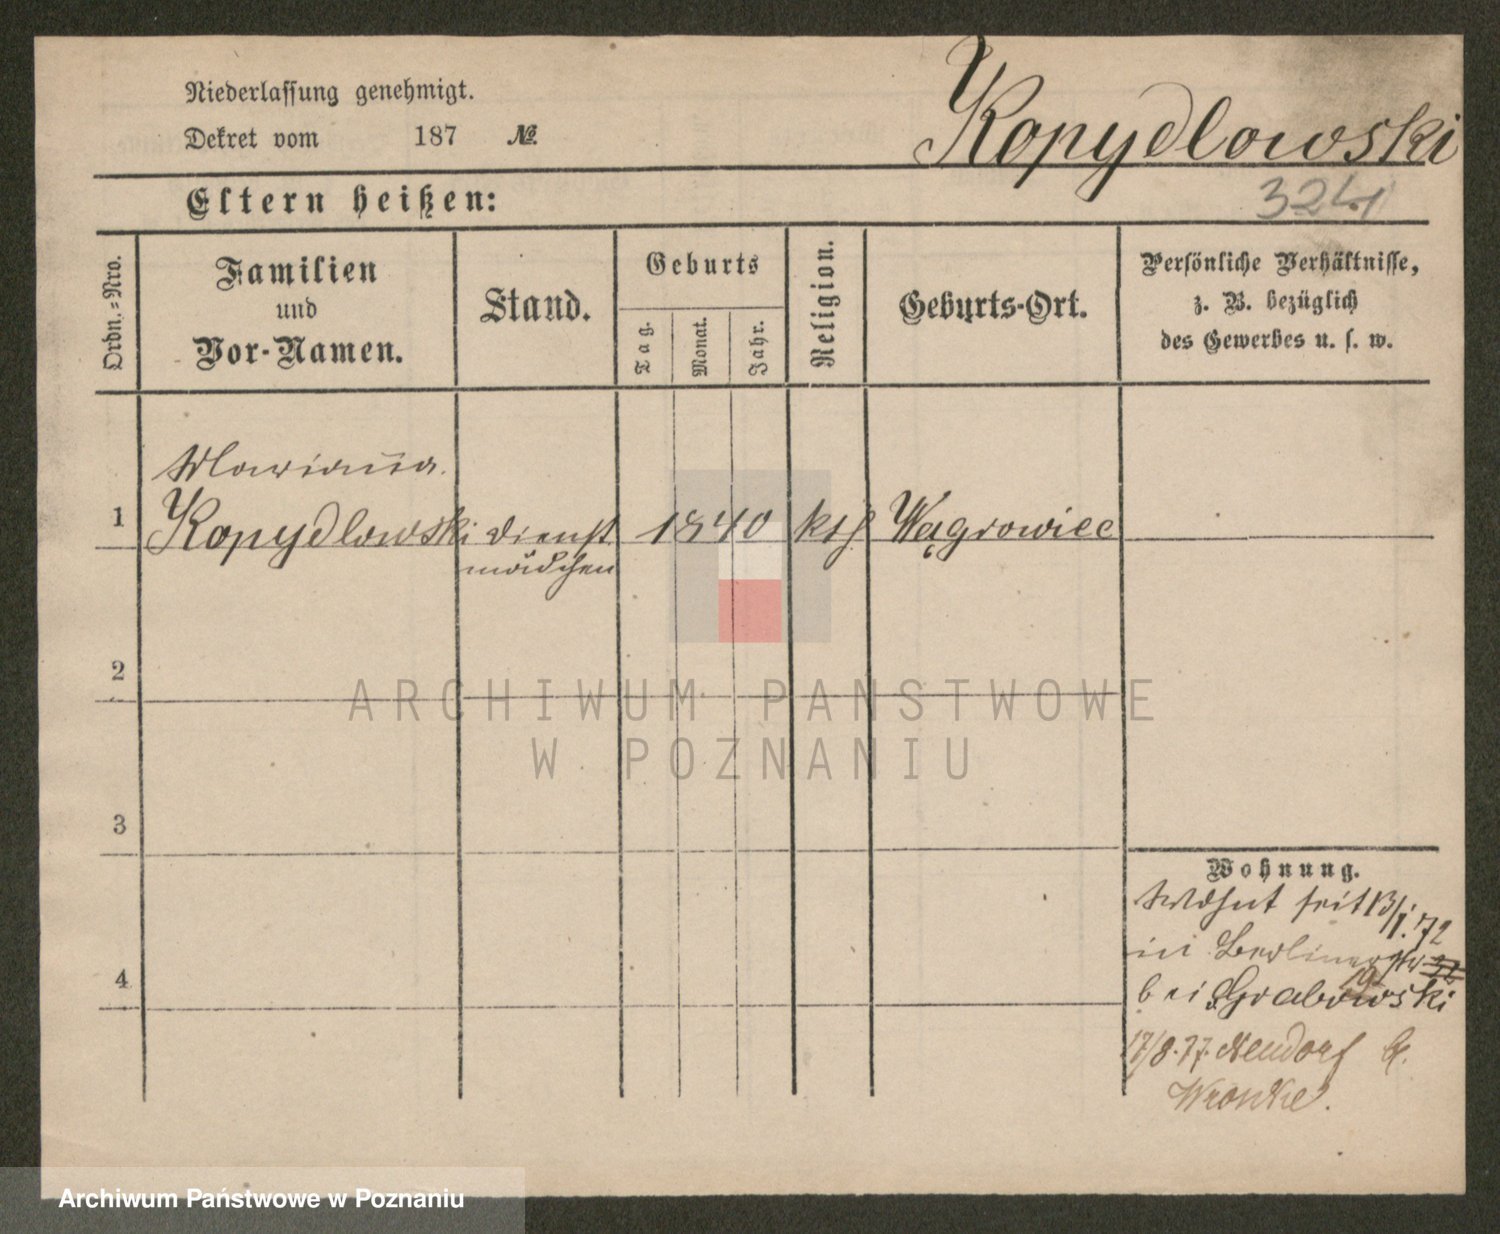 Niederlassung genehmigt.
Dekret vom 187 №
Kopydlowski
324
Eltern heißen:
Ordn.-Nro.
Familien
und
Vor-Namen.
Stand.
Geburts
Tag.
Monat.
Jahr.
Religion.
Geburts-Ort.
Persönliche Verhältnisse,
z. B. bezüglich
des Gewerbes u. s. w.
Marianna
1 Kopydlowski Dienst 1840 kth Wągrowiec
mädchen
2
3
4
Wohnung.
Wohnt seit 13/1. 72
in Berlinerstr 32
19
bei Grabowski
17/8. 77. Neudorf b.
Wronke.
ARCHIWUM PAŃSTWOWE
W POZNANIU
Archiwum Państwowe w Poznaniu